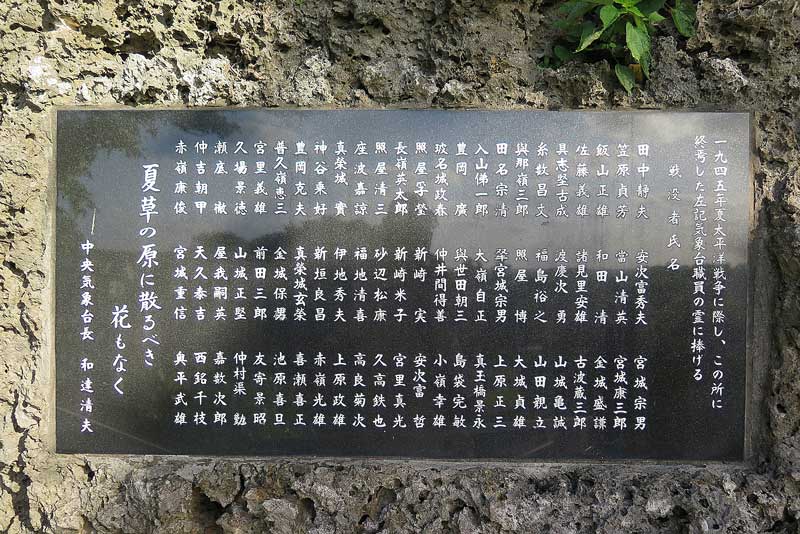 一九四五年夏太平洋戦争に際し、この所に
終焉した左記気象台職員の霊に捧げる
戦没者氏名
田中静夫 安次富秀夫 宮城宗男
笠原貞芳 當山清英 宮城康三郎
飯山正雄 和田清 金城盛謙
佐藤義雄 諸見里安雄 古波蔵三郎
具志堅古成 度慶次勇 山城亀誠
糸数昌文 福島裕之 山田親立
與那嶺三郎 照屋博 大城貞雄
田名宗清 上原正三
入山佛一郎 大嶺自正 真玉橋景永
豊岡廣 與世田朝三 島袋完敏
玻名城政春 仲井間得善 小嶺幸雄
照屋孚榮 新崎実 安次富哲
長嶺英太郎 新崎米子 宮里真光
照屋清三 砂辺松康 久高鉄也
座波嘉諒 福地清喜 高良菊次
真榮城實 伊地秀夫 上原政雄
神谷乗好 新垣良昌 赤嶺光雄
豊岡克夫 真榮城玄榮 喜瀬喜正
普久嶺恵三 金城保男 池原喜旦
宮里義雄 前田三郎 友寄景昭
久場景徳 山城正堅 仲村渠勉
瀬底徹 屋我嗣英 嘉数次郎
仲吉朝甲 天久泰吉 西銘千枝
赤嶺康俊 宮城重信 奥平武雄
夏草の原に散るべき
花もなく
中央気象台長 和達清夫